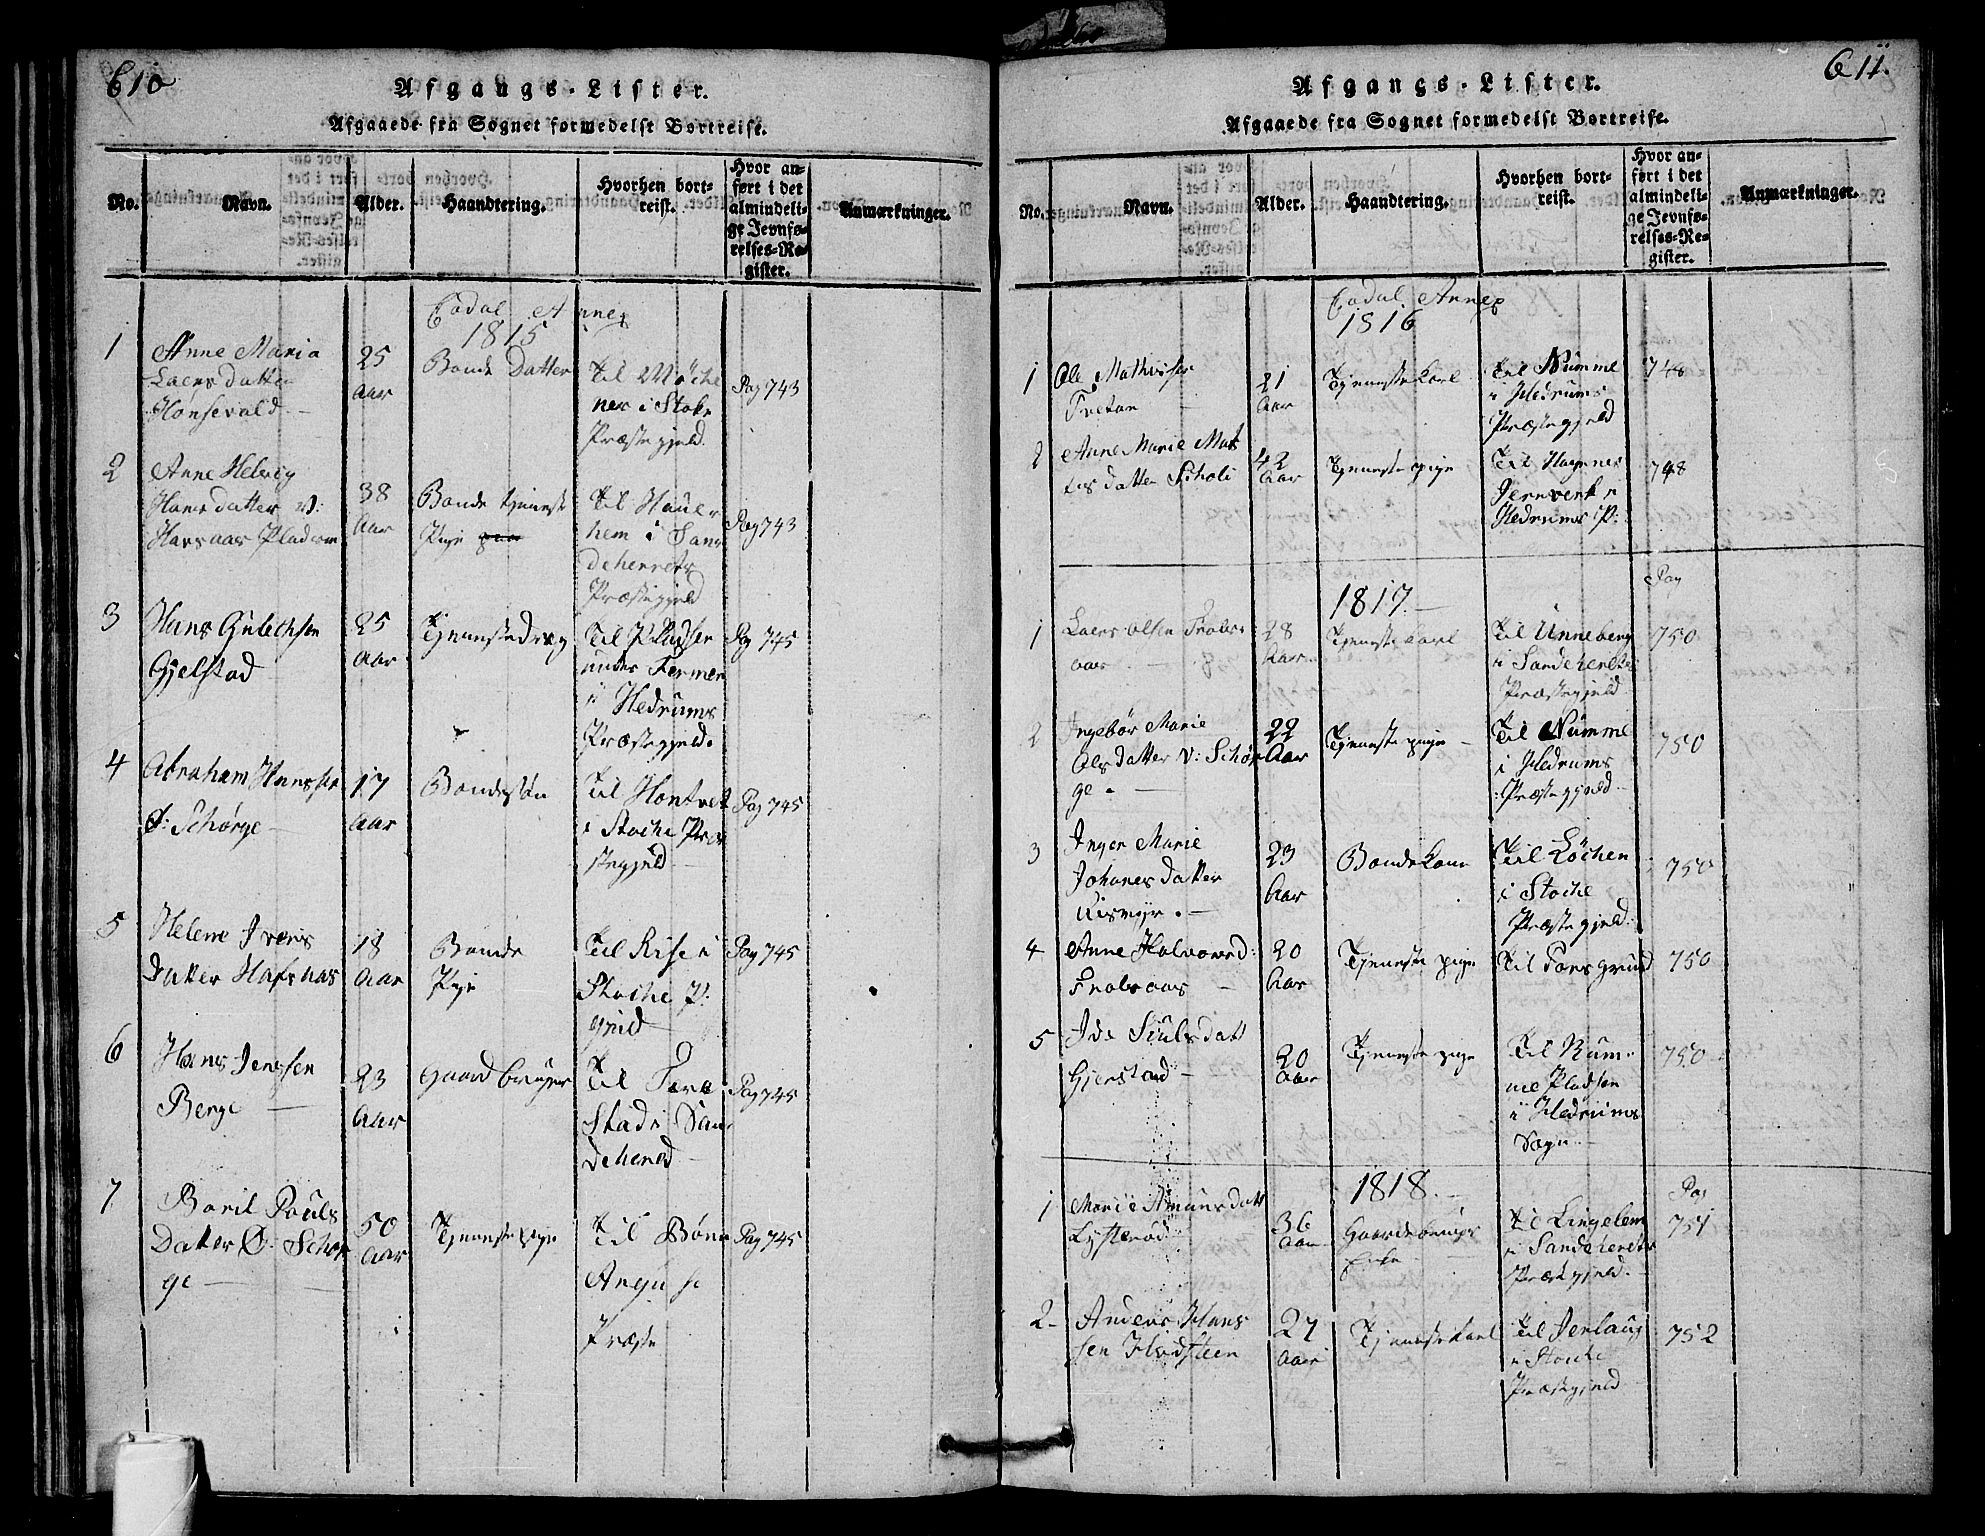 610
Afgangs-Lister.
Afgaaede fra Sognet formedelst Bortreise.
No.
Navn.
Alder.
Haandtering.
Hvorhen bort-
reist.
Hvor an-
ført i det
almindeli-
ge Jevnfø-
relses-Re-
gister.
Anmærkninger.
Eodal Annex
1815
1
Anne Maria
Laersdatter
Hønsevald
25
Aar
Bonde Datter
til Møche
ner i Stoke
Præstegjeld
Pag 743
2
Anne Helvig
Hansdatter v:
Havsaas Pladsen
38
Aar
Bonde tjeneste
Pige
til Hauer
hem i San
deherrets
Præstegjeld
Pag 743
3
Hans Gulechsen
Gjelstad
25
Aar
Tjenestedreng
til Pladsen
under Farmen
i Hedrums
Præstegjeld.
Pag 745
4
Abraham Hanssen
Ø: Schørge
17
Aar
Bondesøn
til Hontvet
i Stoche Præ
stegjeld
Pag 745
5
Helene Ivers
datter Hafsnas
18
Aar
Bonde
Pige
til Rise i
Stoche P:
gjeld
Pag 745
6
Hans Jenssen
Berge
23
Aar
Gaardbruger
til Tora
Stad i San
deherred
Pag 745
7
Boril Pouls
Datter Ø: Schør
ge
50
Aar
Tjenestepige
til
Præste
Pag 745
611.
Afgangs-Lister.
Afgaaede fra Sognet formedelst Bortreise.
No.
Navn.
Alder.
Haandtering.
Hvorhen bort-
reist.
Hvor an-
ført i det
almindeli-
ge Jevnfø-
relses-Re-
gister.
Anmærkninger.
Eodal Annex
1816
1
Ole Mathissen
Tvetan
21
Aar
Tjenestekarl
til Numme
i Hedrums
Præstegjeld
748
2
Anne Marie Mat
tisdatter Scholi
42
Aar
Tjenestepige
til Hagenes
Jernverk i
Hedrums P:
748
1817.
Pag
1
Laers Olsen Trolds
aas
28
Aar
Tjenestekarl
til Unneberg
i Sandeherets
Præstegjeld
750
2
Ingebør Marie
Olsdatter V: Schør
ge.
22
Aar
Tjenestepige
til Numme
i Hedrums
Præstegjeld
750
3
Inger Marie
Johanesdatter
Rismyr.
23
Aar
Bondekone
til Løchen
i Stoche
Præstegjeld:
750
4
Anne Halvorsd:
Trolsaas
20
Aar
Tjenestepige
til Porsgrund
750
5
Ide Siulsdatt
Gjerstad
20
Aar
Tjenestepige
til Num
me Pladsen
i Hedrums
Sogn
750
1818.
Pag
1
Marie Amunsdatt
Lysterød
36
Aar
Gaardebrugs
Enke
til Lingelem
i Sandeherets
Præstgjeld.
751
2
Anders Hans
sen Hvidsteen
27
Aar
Tjenestekarl
til Jerlaug
i Stoche
Præstegjeld
752